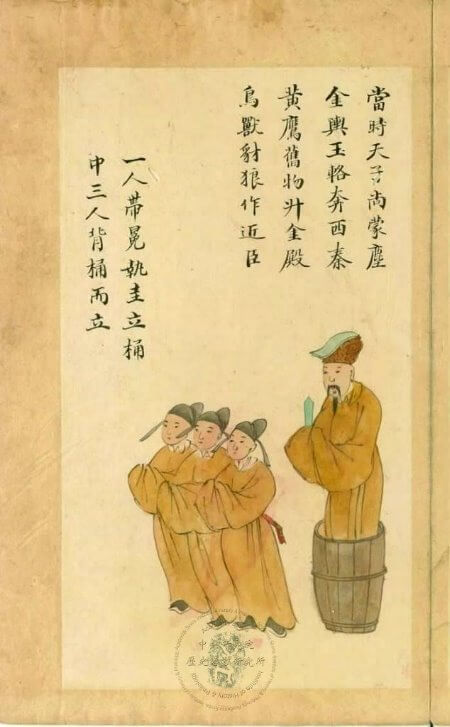 當時天子尚蒙塵
金輿玉輅奔西秦
黃鷹舊物升金殿
鳥獸豺狼作近臣
一人帶冕執圭立桶
中三人背桶而立
歷史語言研究所